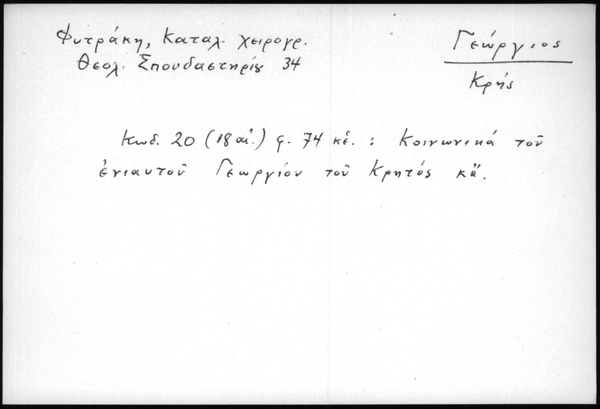 Φυτράκη, Καταλ. χειρογρ.
Θεολ. Σπουδαστηρίου 34
Γεώργιος
Κρής
Κωδ. 20 (18 αἰ.) φ. 74 κἑ. : Κοινωνικά τοῦ
ἐνιαυτοῦ Γεωργίου τοῦ Κρητός κἄ.